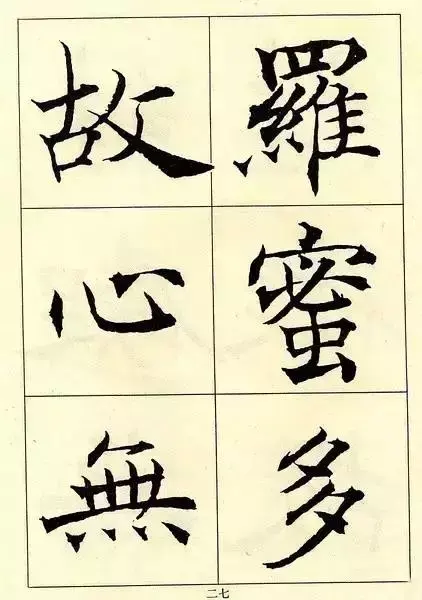 羅蜜多
故心無
二七